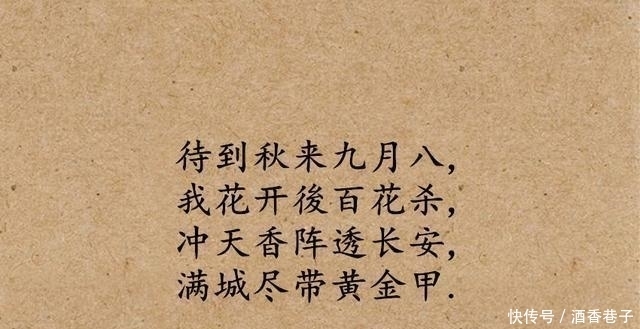 待到秋来九月八,
我花开後百花杀,
冲天香阵透长安,
满城尽带黄金甲.
快传号 / 酒香巷子